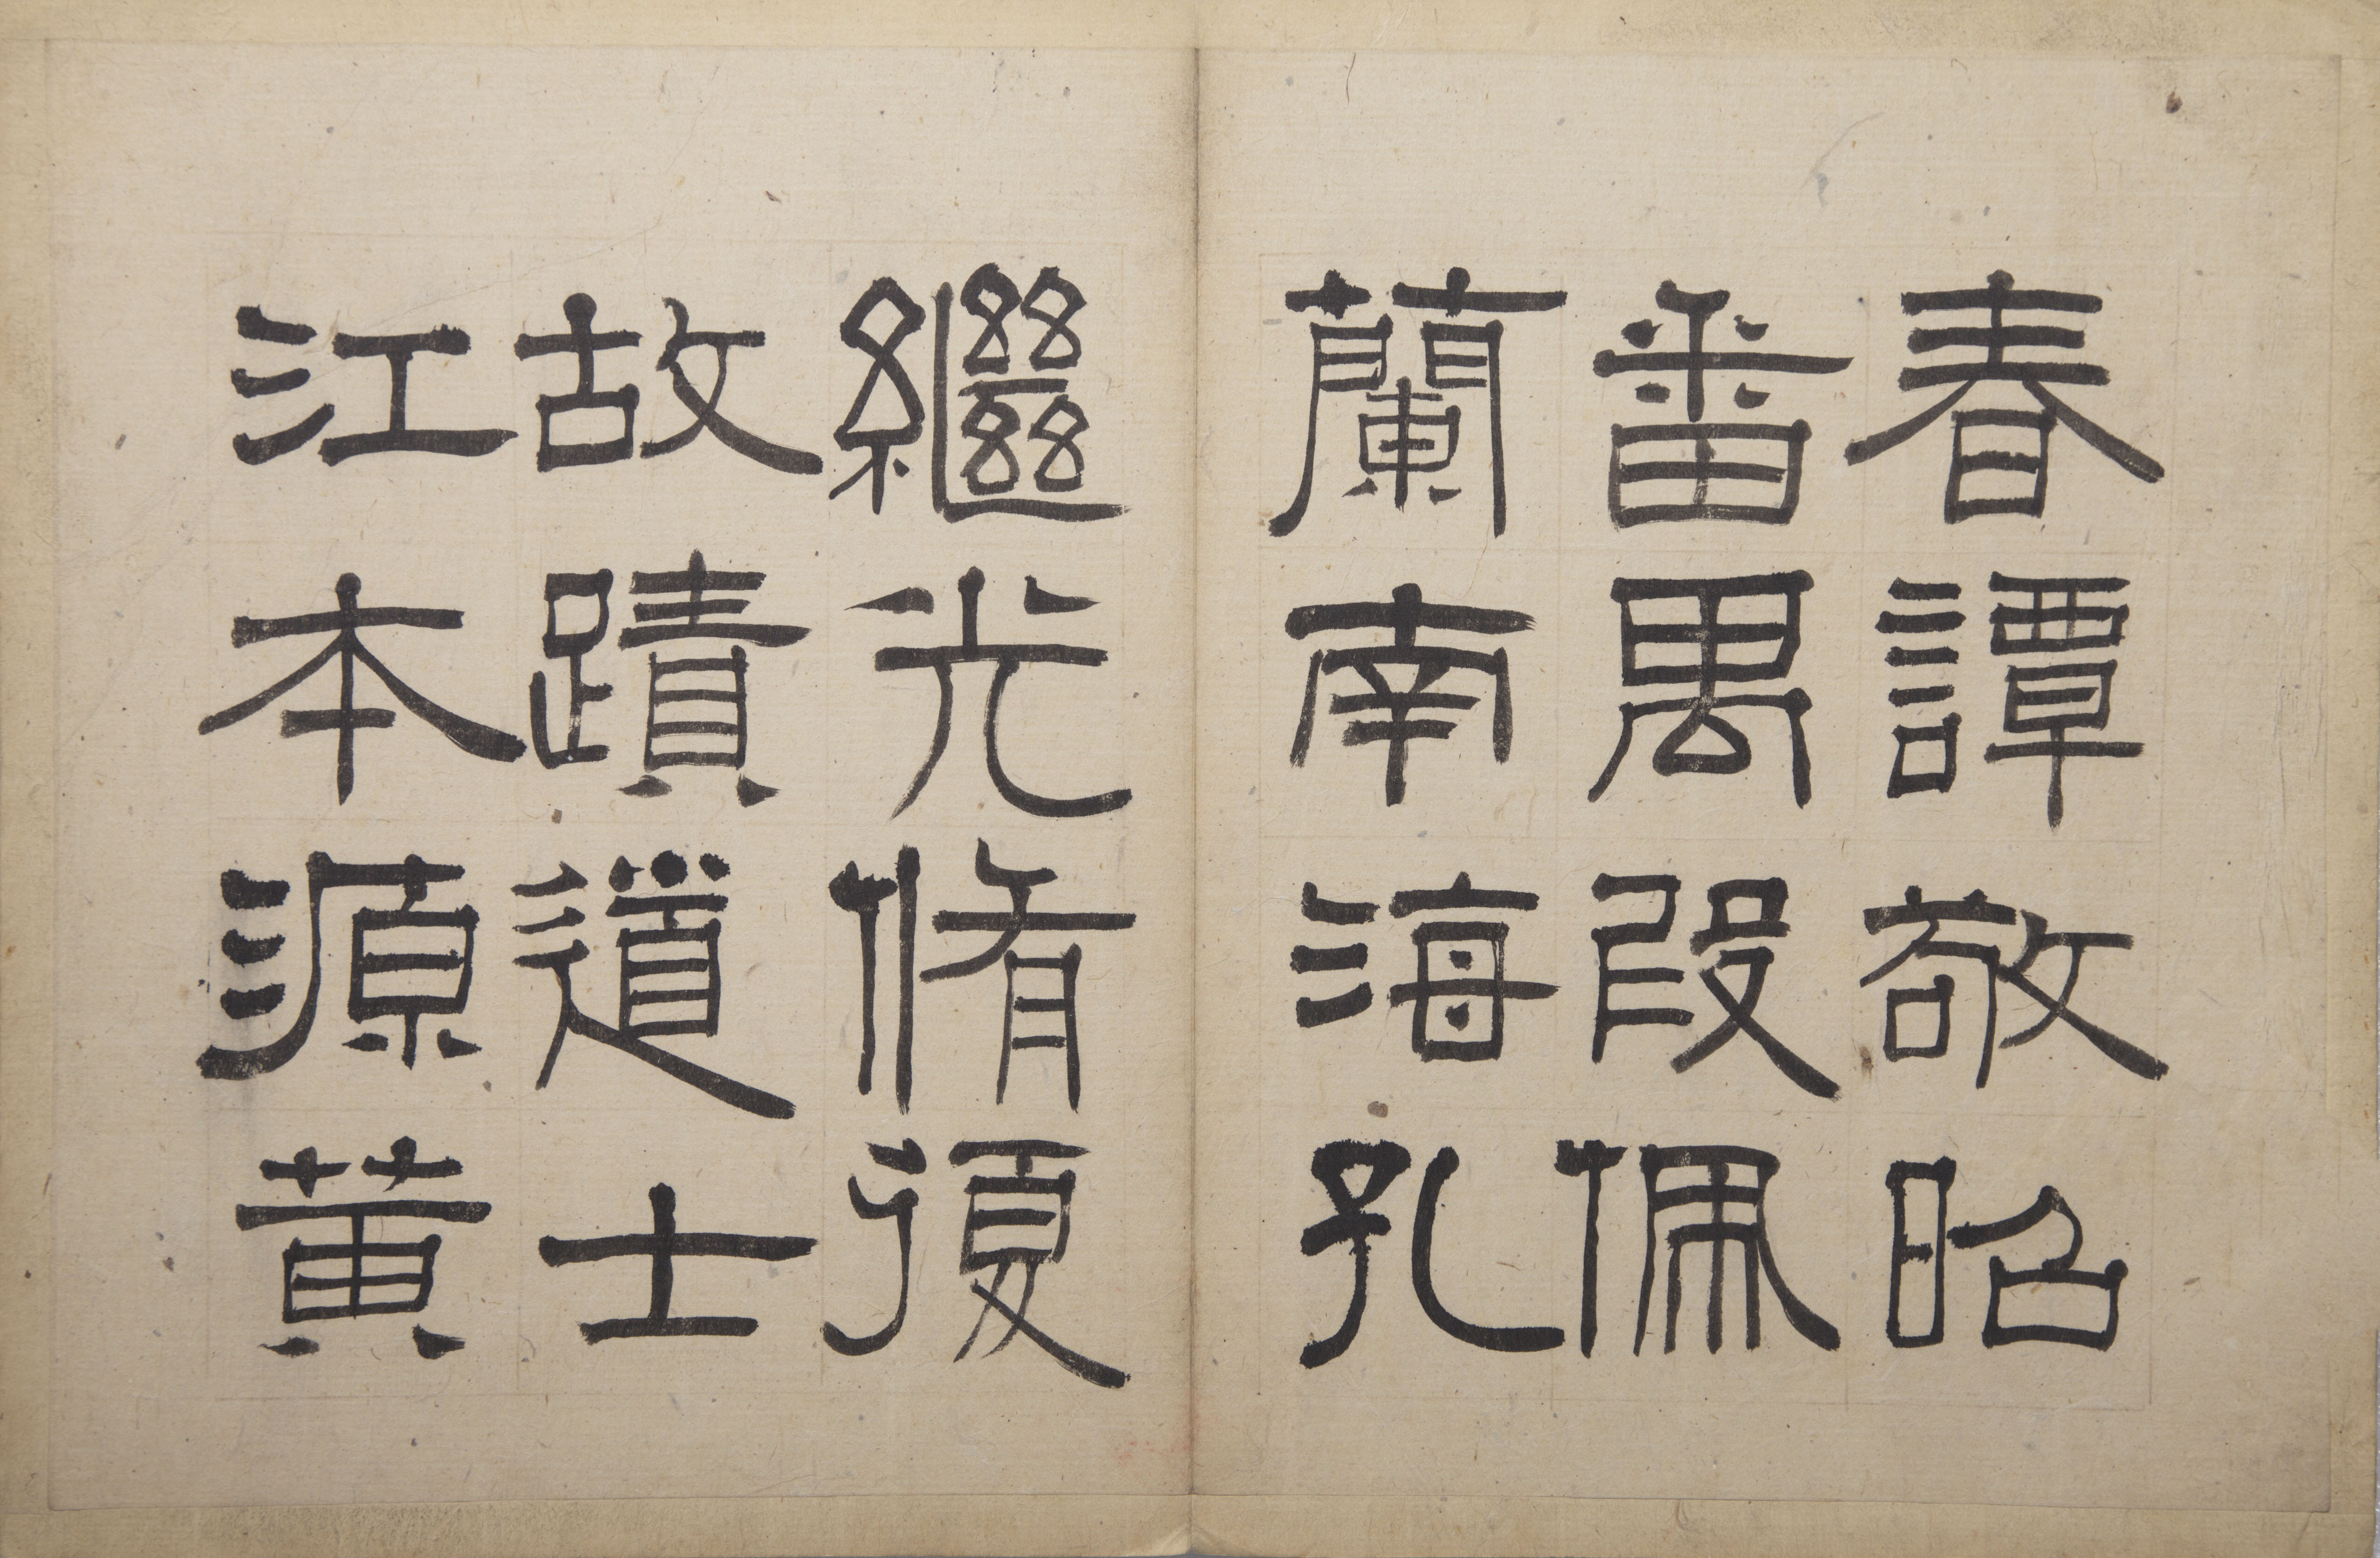 春譚敬昭
番禺段佩
蘭南海孔
繼光脩復
故蹟道士
江本源黃